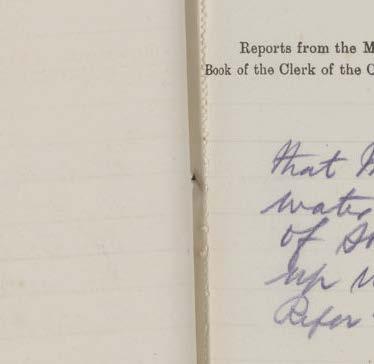 Reports from the M
Book of the Clerk of the C
that
water
of
up
Refer